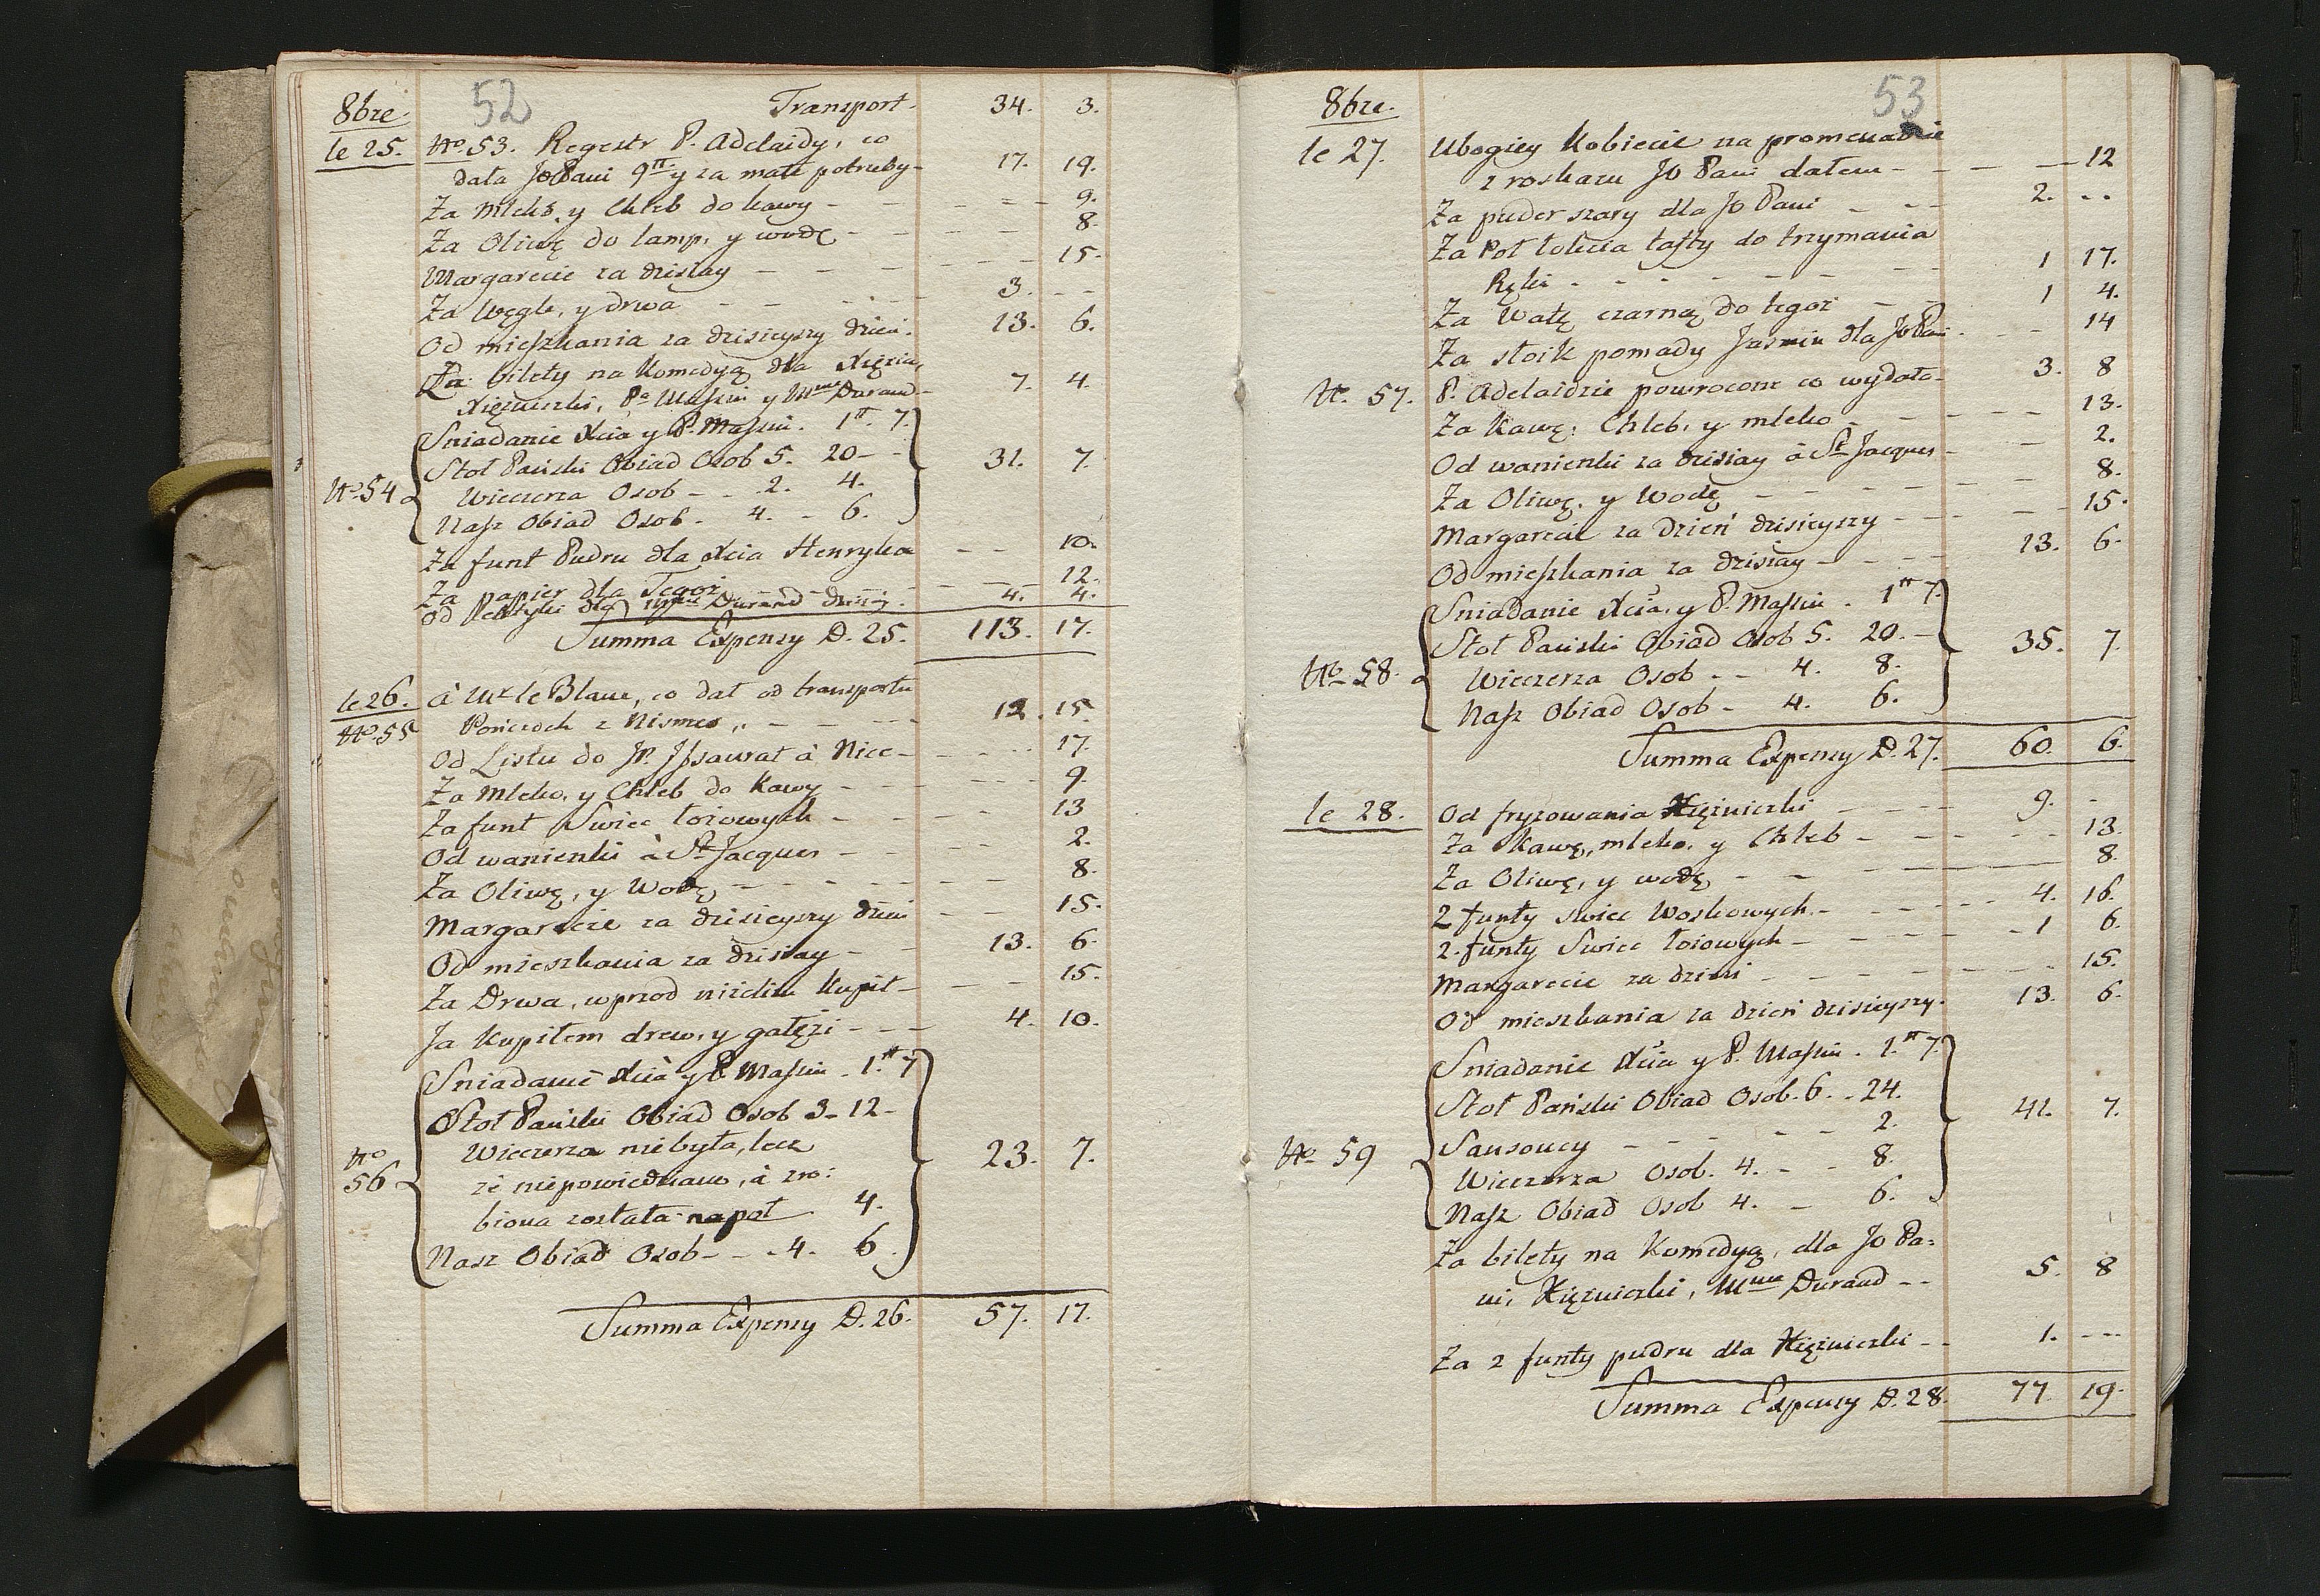 52
8bre. Transport. 34. 3.
le 25. No. 53. Regestr P. Adelaidy, co
data JoPani 9# y za małe potrzeby - 17. 19.
Za Mleko, y Chleb do kawy - - - 9.
Za Oliwę do lamp, y wodę - - - 8.
Margarecie za dzisiay - - - 15.
Za Węgle, y drwa - - - 3. - -
Od mieszkania za dzisieyszy dzień. 13. 6.
Za bilety na Komedyą dla Xięcia,
Xiężniczki, Pa Massin y Mme Durand - 7. 4.
Sniadanie Xcia y P. Massin. 1# 7.
Stoł Pański Obiad Osob 5. 20 - - 31. 7.
No. 54 Wieczerza Osob - - 2. 4.
Nasz Obiad Osob. 4. - 6.
Za funt Pudru dla Xcia Henryka - - 10.
Za papier dla Tegoż - - 12.
Od Lektyki dla Mme Durand dzisiay. 4. 4.
Summa Expensy D. 25. 113. 17.
le 26. à Mr le Blanc, co dał od transportu
No. 55 Ponczoch z Nismes, - - - 12. 15.
Od Listu do Jr. Issaurat à Nice - - - 17.
Za Mleko, y Chleb do Kawy - - - 9.
Za funt Swiec łoiowych - - - 13
Od wanienki à St Jacques - - - 2.
Za Oliwę, y Wodę - - - 8.
Margarecie za dzisieyszy dzień - - 15.
Od mieszkania za dzisiay - - 13. 6.
Za Drwa, wprzod niżelim Kupił - - - 15.
Ja Kupiłem drew, y gałęzi - - - 4. 10.
Sniadanie Xcia y P. Massin - 1.# 7
Stoł Pański Obiad Osob 3 - 12 -
Wieczerza nie była, lecz
No 56 że niepowiedziano, à zro: 23. 7.
biona została na pół 4.
Nasz Obiad Osob - - - 4. 6.
Summa Expensy D. 26. 57. 17.
53
8bre.
le 27. Ubogiey Kobiecie na promenadzie
z roskazu JO Pani dałem - - - 12
Za puder szary dla JO Pani - - - 2. - -
Za Poł łokcia tafty do trzymania
Ręki - - - 1 17.
Za Watę czarną do tegoż - - 1 4.
Za słoik pomady Jasmin dla JoPani - - 14
No. 57. P. Adelaidzie powrocone co wydała - 3. 8
Za Kawę, Chleb, y mleko - - - 13.
Od wanienki za dzisiay à St Jacques - - 2.
Za Oliwę, y Wodę - - - 8.
Margarecie za dzień dzisieyszy - - - 15.
Od mieszkania za dzisiay - - - 13. 6.
Sniadanie Xcia, y P. Massin. 1# 7.
Stoł Pański Obiad Osob 5. 20. - 35. 7.
No. 58. Wieczerza Osob - - 4. 8.
Nasz Obiad Osob - 4. 6.
Summa Expensy D. 27. 60. 6.
le 28. Od fryzowania Xiężniczki - - - 9. -
Za Kawę, mleko, y Chleb - - - 13.
Za Oliwę, y wodę - - - 8.
2 funty swiec Woskowych - - - 4. 16.
2. funty Swiec łoiowych - - - 1 6.
Margarecie za dzień - - - 15.
Od mieszkania za dzień dzisieyszy. 13. 6.
Sniadanie Xcia y P. Massin. 1.# 7.
Stoł Pański Obiad Osob. 6. - 24. 41. 7.
No. 59 Sansoucy - - - 2.
Wieczerza Osob. 4. - - 8.
Nasz Obiad Osob 4. - 6.
Za bilety na Komedyą, dla Jo Pa:
ni, Xiężniczki, Mme Durand - - 5. 8
Za 2 funty pudru dla Xiężniczki - - 1. - - -
Summa Expensy D. 28. 77. 19.